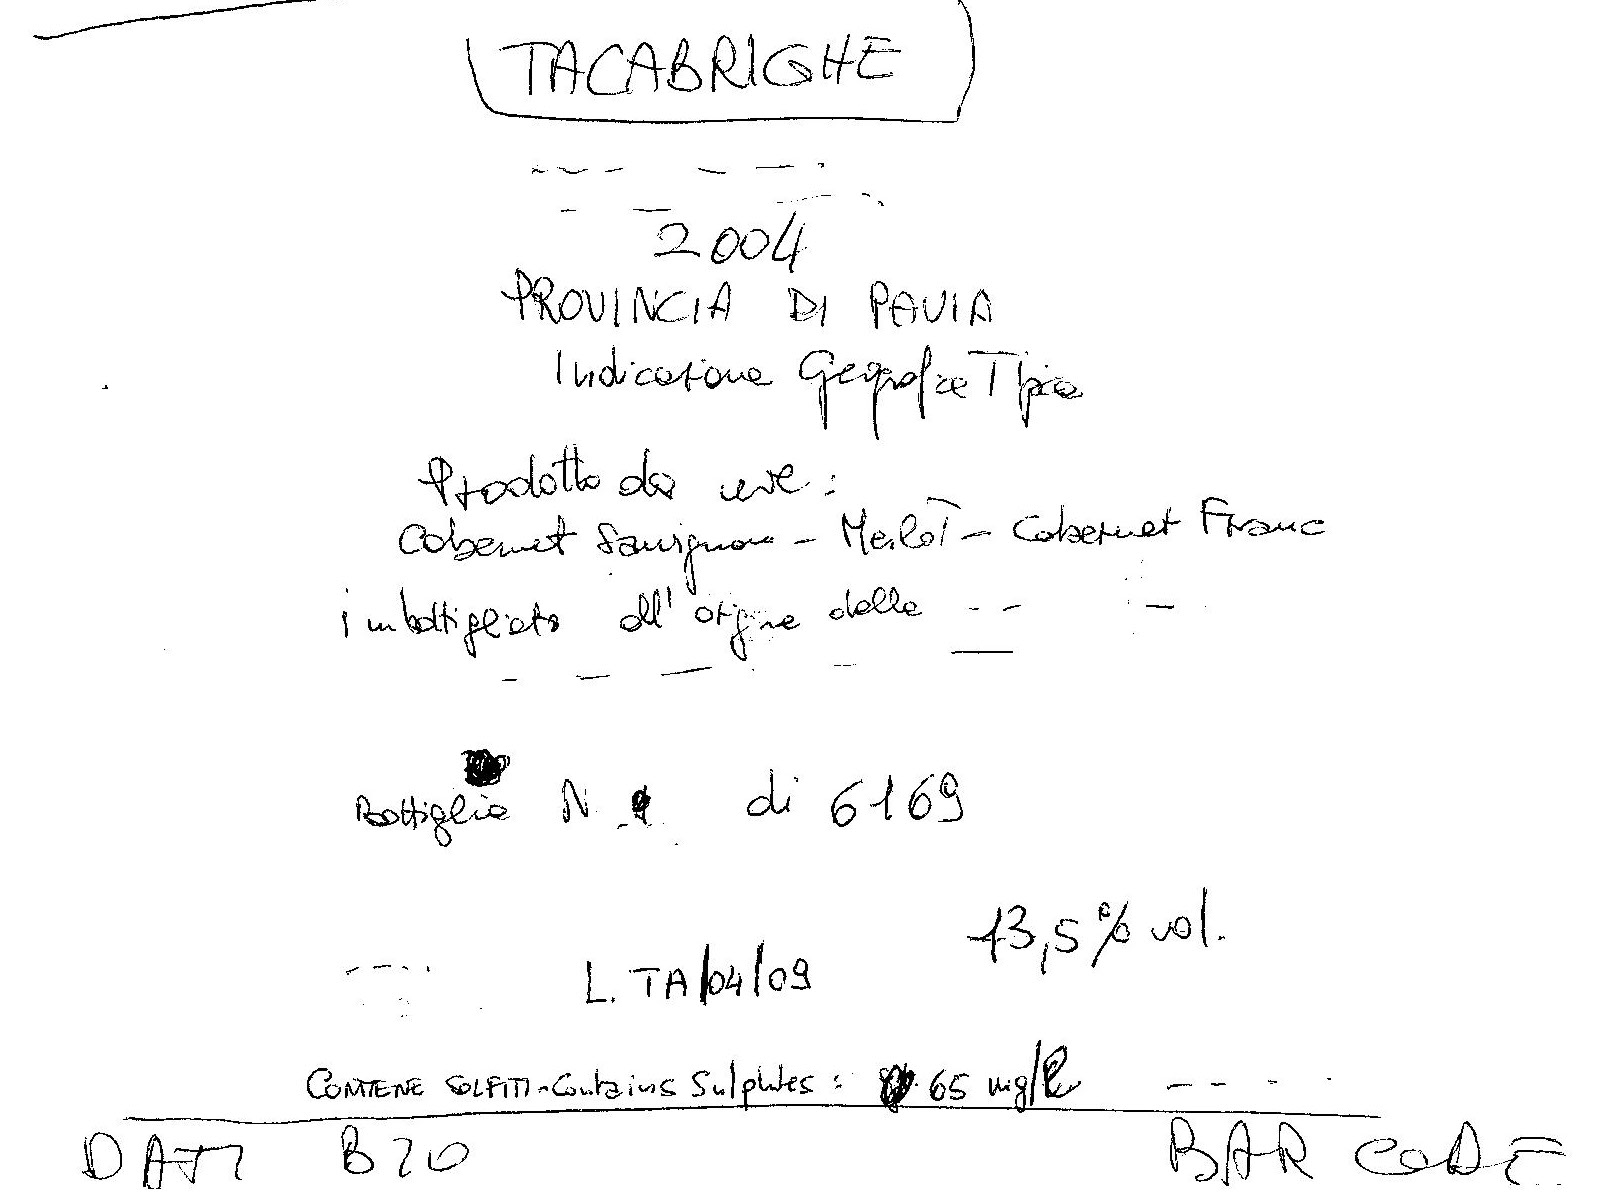 TACABRIGHE
2004
PROVINCIA DI PAVIA
Indicazione Geografica Tipica
Prodotto da uve:
Cabernet Sauvignon - Merlot - Cabernet Franc
imbottigliato all'origine dalla
Bottiglia N. di 6169
13,5% vol.
L. TA/04/09
CONTIENE SOLFITI - Contains Sulphites: 65 mg/l
DATI BIO BAR CODE